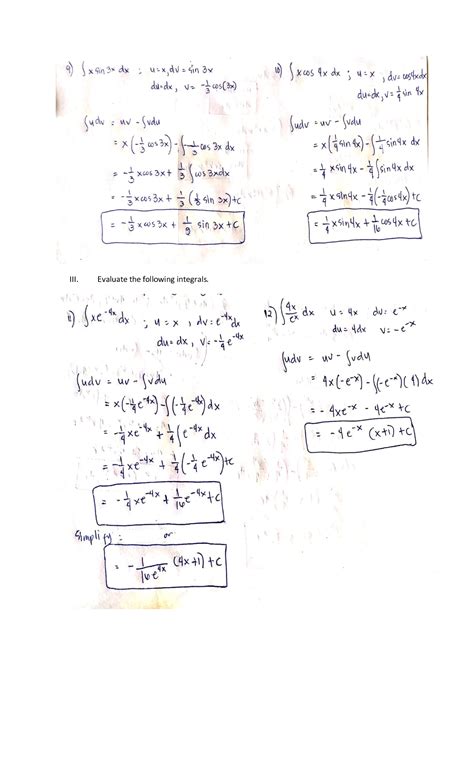 9) ∫ x sin 3x dx ; u = x, dv = sin 3x
du = dx, v = -1/3 cos(3x)
∫udv = uv - ∫vdu
= x(-1/3 cos 3x) - ∫-1/3 cos 3x dx
= -1/3 x cos 3x + 1/3 ∫cos 3x dx
= -1/3 x cos 3x + 1/3 (1/3 sin 3x) + C
= -1/3 x cos 3x + 1/9 sin 3x + C
10) ∫ x cos 4x dx ; u = x, dv = cos 4x dx
du = dx, v = 1/4 sin 4x
∫udv = uv - ∫vdu
= x(1/4 sin 4x) - ∫1/4 sin 4x dx
= 1/4 x sin 4x - 1/4 ∫sin 4x dx
= 1/4 x sin 4x - 1/4 (-1/4 cos 4x) + C
= 1/4 x sin 4x + 1/16 cos 4x + C
III. Evaluate the following integrals.
11) ∫ xe^-4x dx ; u = x, dv = e^-4x dx
du = dx, v = -1/4 e^-4x
∫udv = uv - ∫vdu
= x(-1/4 e^-4x) - ∫(-1/4 e^-4x) dx
= -1/4 xe^-4x + 1/4 ∫e^-4x dx
= -1/4 xe^-4x + 1/4 (-1/4 e^-4x) + C
= -1/4 xe^-4x + 1/16 e^-4x + C
Simplify: or
= -1/16e^4x (4x+1) + C
12) ∫ 4x/e^x dx u = 4x dv = e^-x
du = 4dx v = -e^-x
∫udv = uv - ∫vdu
= 4x(-e^-x) - ∫(-e^-x)(4) dx
= -4xe^-x - 4e^-x + C
= -4e^-x (x+1) + C